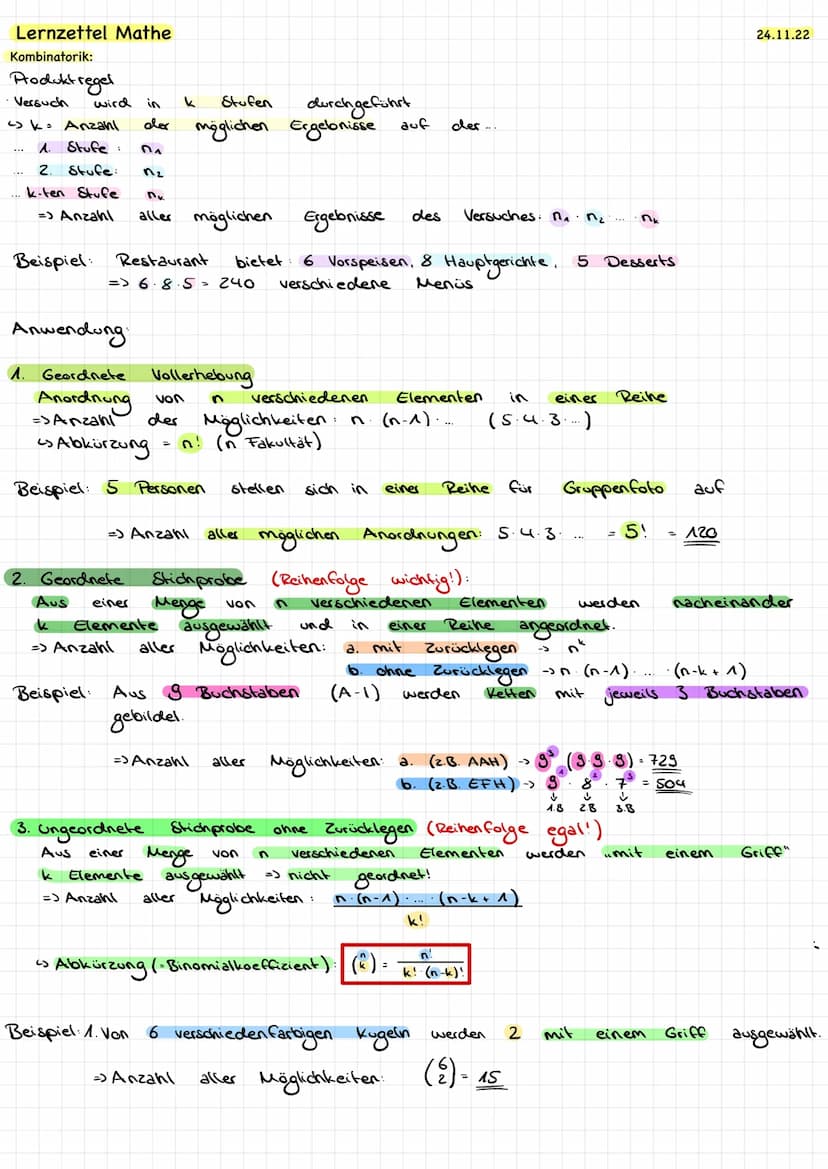 Lernzettel Mathe 24.11.22
Kombinatorik:
Produktregel
· Versuch wird in k Stufen durchgeführt
↳ k = Anzahl der möglichen Ergebnisse auf der ...
... 1. Stufe : n₁
... 2. Stufe: n₂
... k-ten Stufe nₖ
=> Anzahl aller möglichen Ergebnisse des Versuches: n₁ · n₂ ... · nₖ
Beispiel: Restaurant bietet : 6 Vorspeisen, 8 Hauptgerichte, 5 Desserts
=> 6·8·5 = 240 verschiedene Menüs
Anwendung:
1. Geordnete Vollerhebung
Anordnung von n verschiedenen Elementen in einer Reihe
=> Anzahl der Möglichkeiten: n · (n-1) · ... (5·4·3·...)
↳ Abkürzung = n! (n Fakultät)
Beispiel: 5 Personen stellen sich in einer Reihe für Gruppenfoto auf
=> Anzahl aller möglichen Anordnungen: 5·4·3· ... = 5! = 120
2. Geordnete Stichprobe (Reihenfolge wichtig!):
Aus einer Menge von n verschiedenen Elementen werden nacheinander
k Elemente ausgewählt und in einer Reihe angeordnet.
=> Anzahl aller Möglichkeiten: a. mit Zurücklegen -> nᵏ
b. ohne Zurücklegen -> n · (n-1) · ... · (n-k+1)
Beispiel: Aus 9 Buchstaben (A-I) werden Ketten mit jeweils 3 Buchstaben
gebildet.
=> Anzahl aller Möglichkeiten: a. (z.B. AAH) -> 9³ (9·9·9) = 729
b. (z.B. EFH) -> 9¹ · 8² · 7³ = 504
↓ ↓ ↓
1.B 2.B 3.B
3. Ungeordnete Stichprobe ohne Zurücklegen (Reihenfolge egal!)
Aus einer Menge von n verschiedenen Elementen werden „mit einem Griff"
k Elemente ausgewählt => nicht geordnet!
=> Anzahl aller Möglichkeiten : n·(n-1)· ... ·(n-k+1)
k!
↳ Abkürzung (=Binomialkoeffizient): (n k) = n!
k! · (n-k)!
Beispiel: 1. Von 6 verschiedenfarbigen Kugeln werden 2 mit einem Griff ausgewählt.
=> Anzahl aller Möglichkeiten: (6 2) = 15